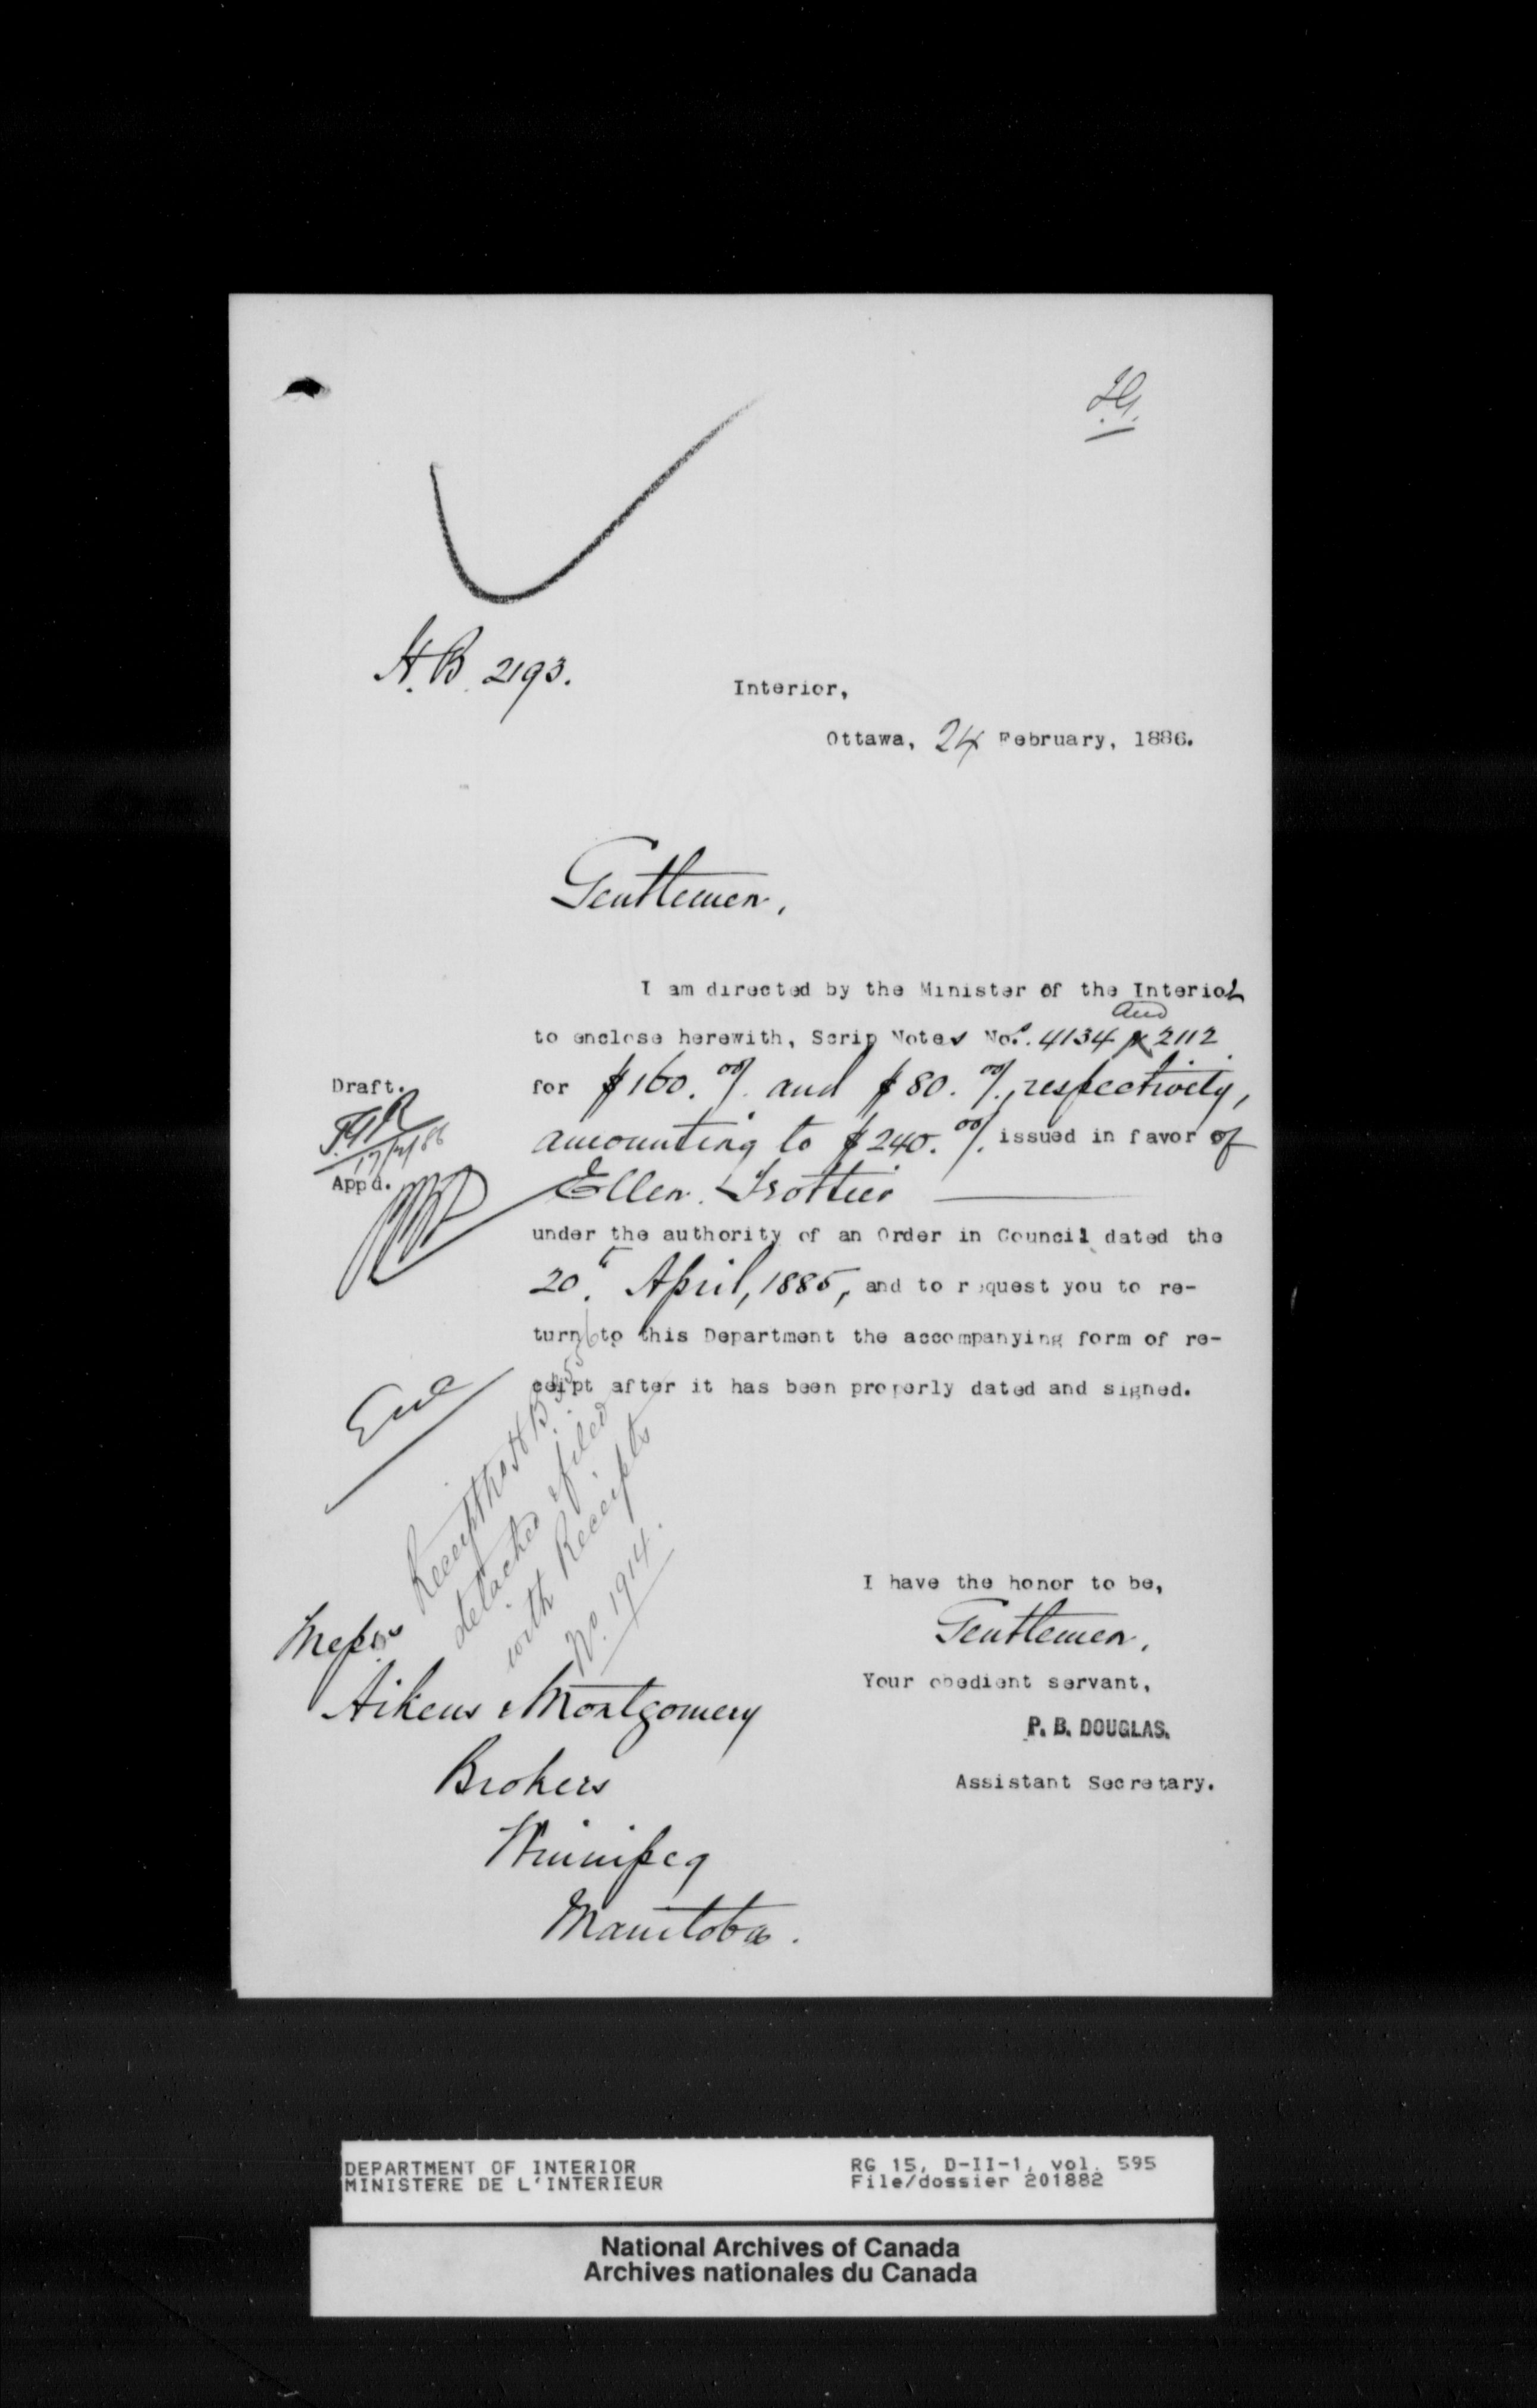 H.B. 2193.
Interior,
Ottawa, 24 February, 1886.
Gentlemen,
I am directed by the Minister of the Interior
and
to enclose herewith, Scrip Notes Nos. 4134 & 2112
for $160.00/. and $80.00/. respectively,
Draft.
amounting to $240.00/. issued in favor of
Appd.
Ellen Trottier
under the authority of an Order in Council dated the
20th April, 1885, and to request you to re-
turn to this Department the accompanying form of re-
ceipt after it has been properly dated and signed.
Receipt
detached & filed
with Receipts
No. 1914.
I have the honor to be,
Gentlemen,
Your obedient servant,
P. B. DOUGLAS.
Assistant Secretary.
Messrs
Aikens & Montgomery
Brokers
Winnipeg
Manitoba.
DEPARTMENT OF INTERIOR
MINISTERE DE L'INTERIEUR
RG 15, D-II-1, vol. 595
File/dossier 201882
National Archives of Canada
Archives nationales du Canada